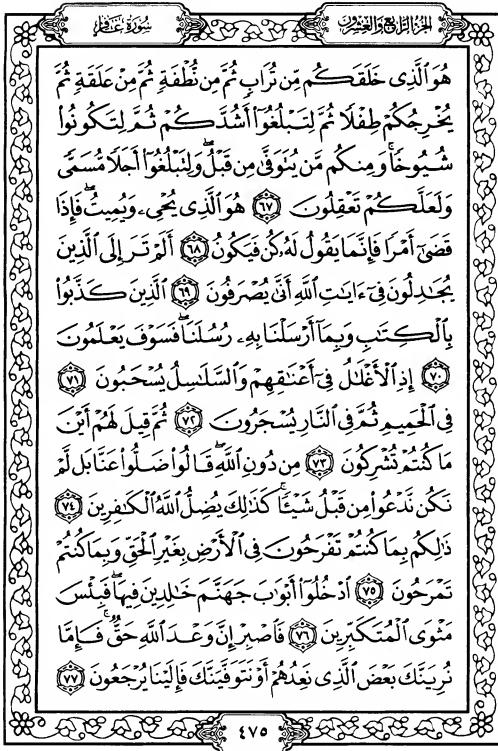 الجزء الرابع والعشرون سورة غافر
هُوَ ٱلَّذِى خَلَقَكُم مِّن تُرَابٍ ثُمَّ مِن نُّطْفَةٍ ثُمَّ مِنْ عَلَقَةٍ ثُمَّ
يُخْرِجُكُمْ طِفْلًا ثُمَّ لِتَبْلُغُوٓا۟ أَشُدَّكُمْ ثُمَّ لِتَكُونُوا۟
شُيُوخًا ۚ وَمِنكُم مَّن يُتَوَفَّىٰ مِن قَبْلُ ۖ وَلِتَبْلُغُوٓا۟ أَجَلًا مُّسَمًّى
وَلَعَلَّكُمْ تَعْقِلُونَ ٦٧ هُوَ ٱلَّذِى يُحْىِۦ وَيُمِيتُ ۖ فَإِذَا
قَضَىٰٓ أَمْرًا فَإِنَّمَا يَقُولُ لَهُۥ كُن فَيَكُونُ ٦٨ أَلَمْ تَرَ إِلَى ٱلَّذِينَ
يُجَـٰدِلُونَ فِىٓ ءَايَـٰتِ ٱللَّهِ أَنَّىٰ يُصْرَفُونَ ٦٩ ٱلَّذِينَ كَذَّبُوا۟
بِٱلْكِتَـٰبِ وَبِمَآ أَرْسَلْنَا بِهِۦ رُسُلَنَا ۖ فَسَوْفَ يَعْلَمُونَ
٧٠ إِذِ ٱلْأَغْلَـٰلُ فِىٓ أَعْنَـٰقِهِمْ وَٱلسَّلَـٰسِلُ يُسْحَبُونَ ٧١
فِى ٱلْحَمِيمِ ثُمَّ فِى ٱلنَّارِ يُسْجَرُونَ ٧٢ ثُمَّ قِيلَ لَهُمْ أَيْنَ
مَا كُنتُمْ تُشْرِكُونَ ٧٣ مِن دُونِ ٱللَّهِ ۖ قَالُوا۟ ضَلُّوا۟ عَنَّا بَل لَّمْ
نَكُن نَّدْعُوا۟ مِن قَبْلُ شَيْـًٔا ۚ كَذَٰلِكَ يُضِلُّ ٱللَّهُ ٱلْكَـٰفِرِينَ ٧٤
ذَٰلِكُم بِمَا كُنتُمْ تَفْرَحُونَ فِى ٱلْأَرْضِ بِغَيْرِ ٱلْحَقِّ وَبِمَا كُنتُمْ
تَمْرَحُونَ ٧٥ ٱدْخُلُوٓا۟ أَبْوَٰبَ جَهَنَّمَ خَـٰلِدِينَ فِيهَا ۖ فَبِئْسَ
مَثْوَى ٱلْمُتَكَبِّرِينَ ٧٦ فَٱصْبِرْ إِنَّ وَعْدَ ٱللَّهِ حَقٌّ ۚ فَإِمَّا
نُرِيَنَّكَ بَعْضَ ٱلَّذِى نَعِدُهُمْ أَوْ نَتَوَفَّيَنَّكَ فَإِلَيْنَا يُرْجَعُونَ ٧٧
٤٧٥